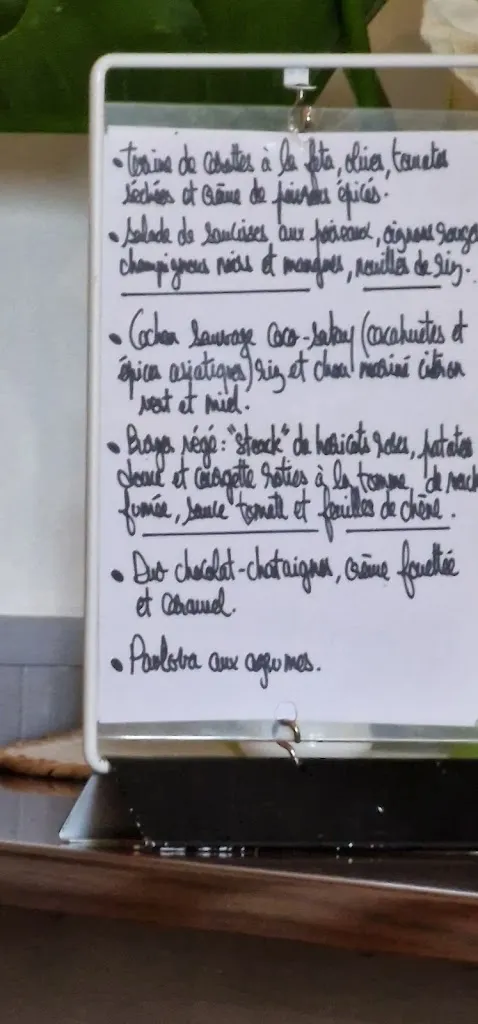 • Terrine de carottes à la feta, olives, tomates
séchées et crème de poivrons épicés.
• Salade de saucisses aux poireaux, oignons rouges
champignons noirs et mangues, nouilles de riz.
• Cochon sauvage coco-satay (cacahuètes et
épices asiatiques) riz et chou mariné citron
vert et miel.
• Burger végé: "steack" de haricots rouges, patates
douce et courgette roties à la tomme de
fumée, sauce tomate et feuilles de chêne.
• Duo chocolat-chataignes, crème fouettée
et caramel.
• Pavlova aux agrumes.